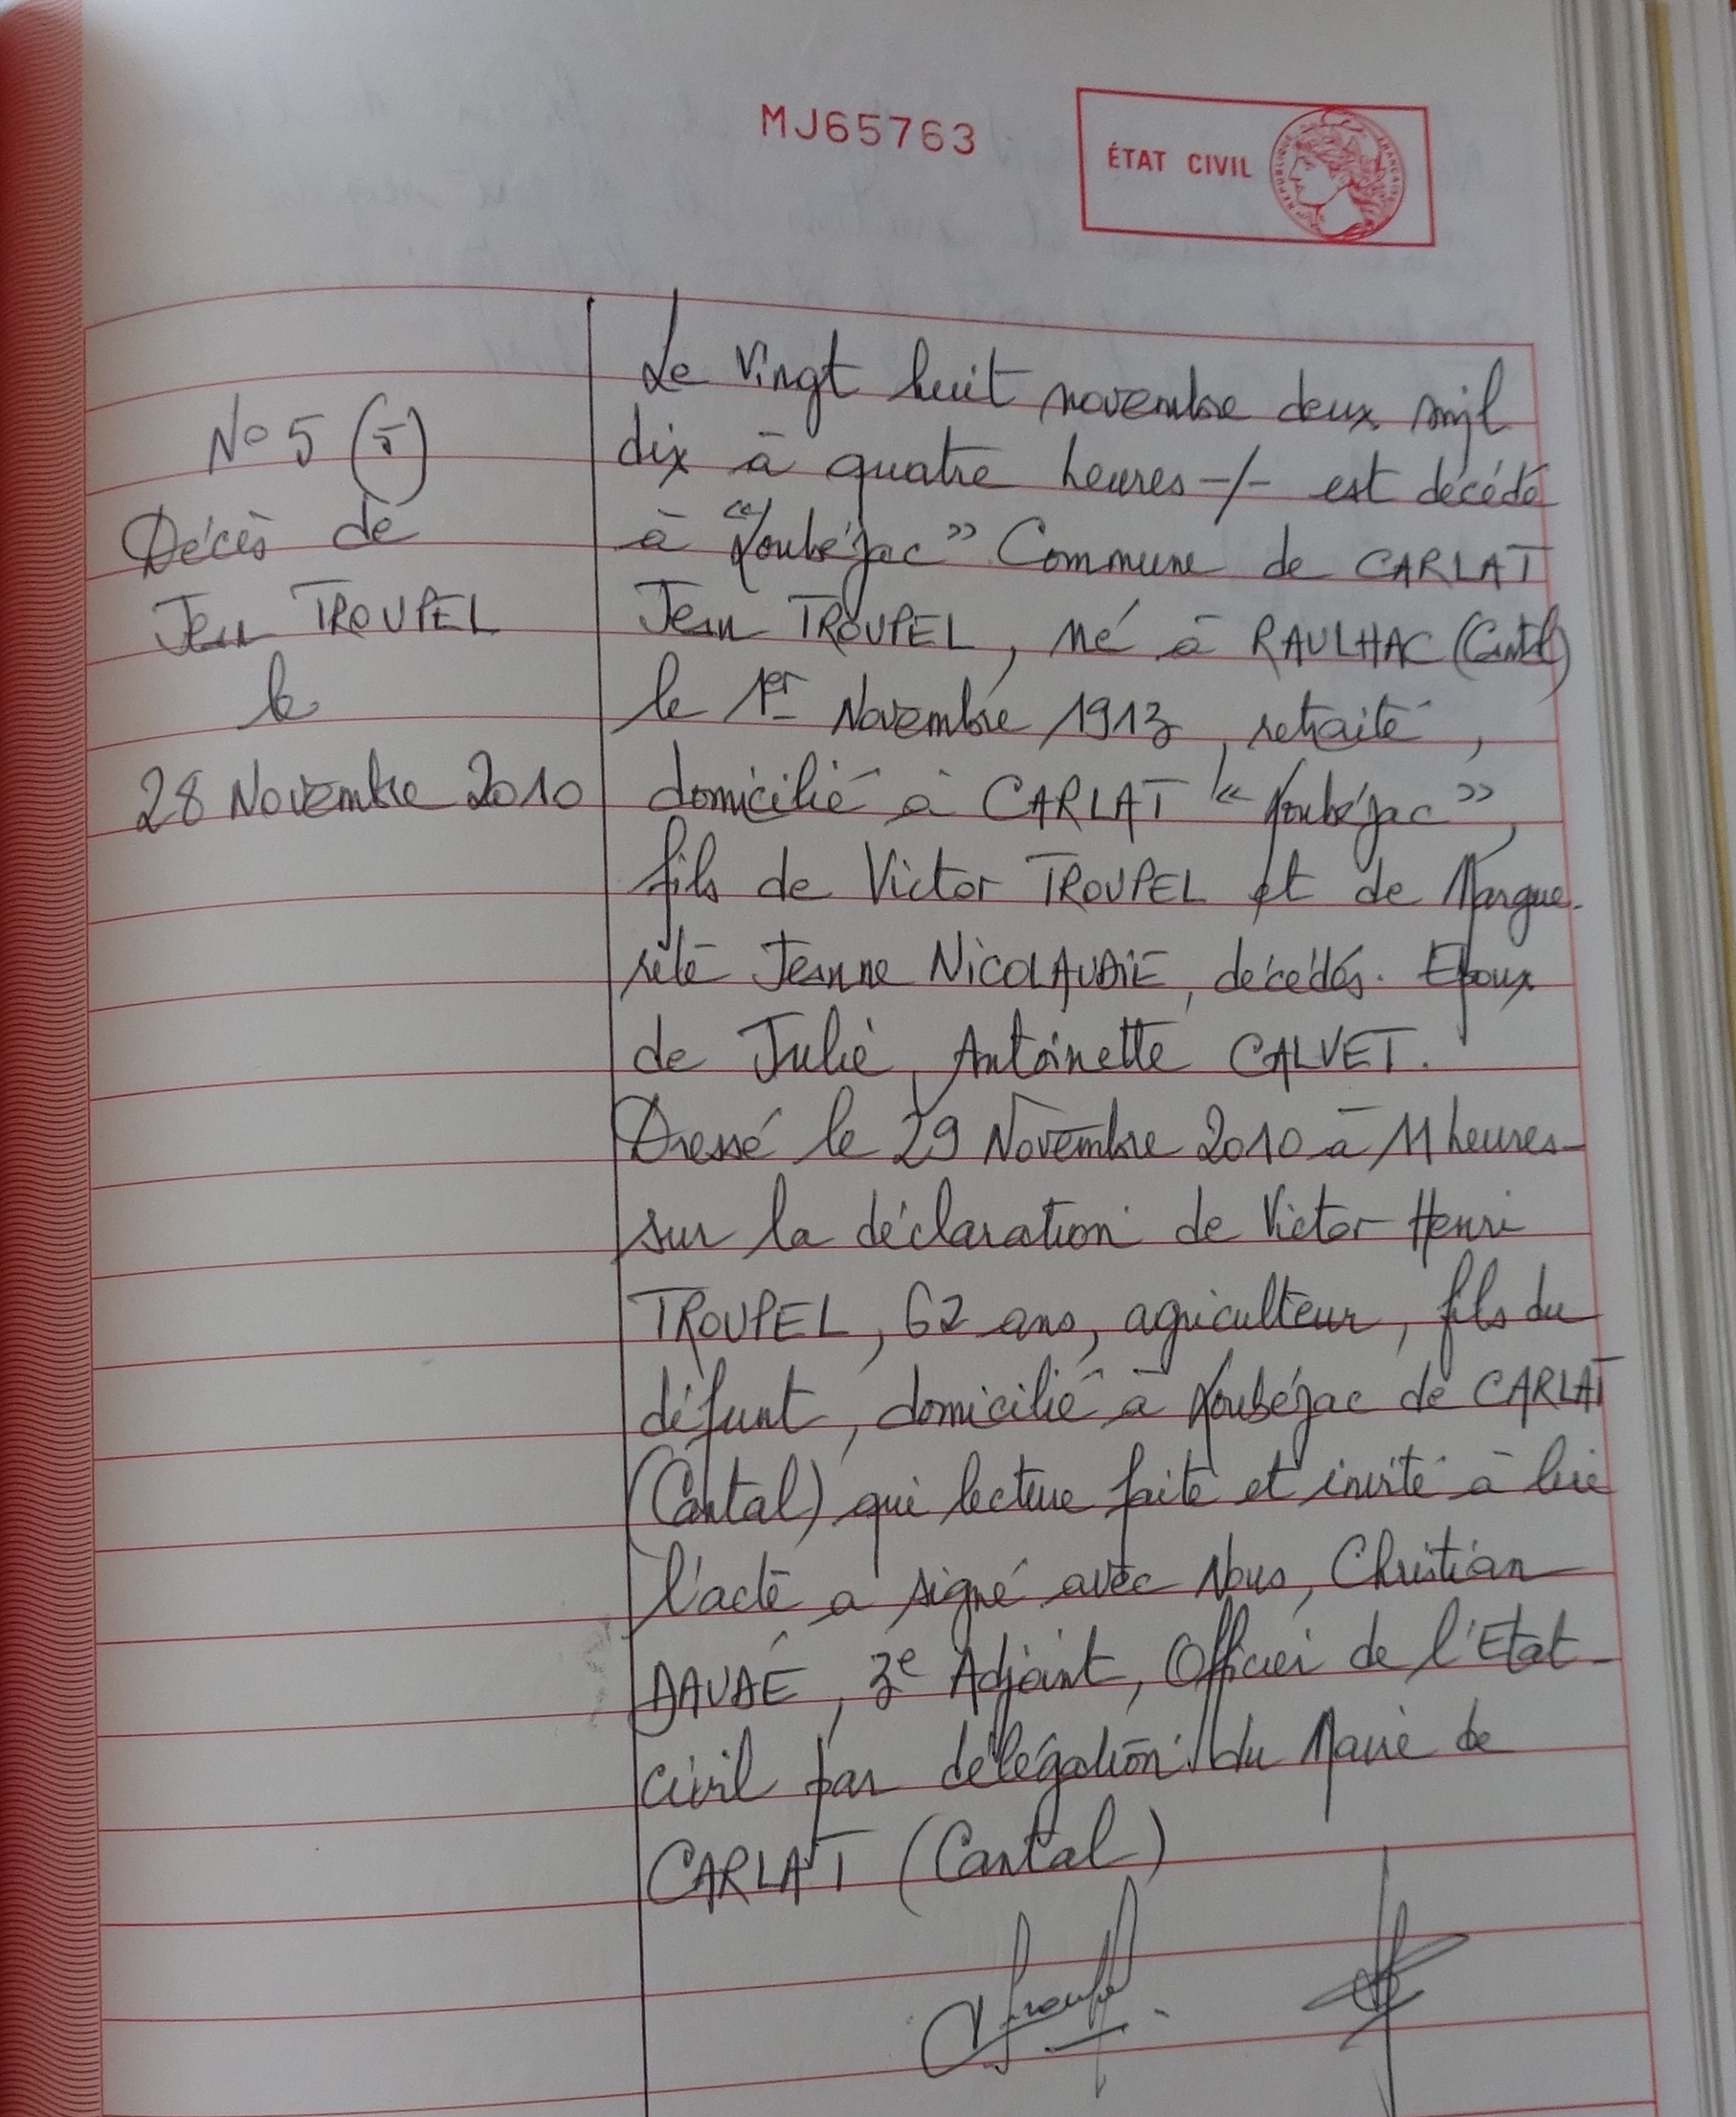 MJ65763
ÉTAT CIVIL
RÉPUBLIQUE FRANÇAISE
No 5 (5)
Décès de
Jean TROUPEL
le
28 Novembre 2010
Le Vingt huit novembre deux mil
dix à quatre heures -/- est décédé
à " Commune de CARLAT
Jean TROUPEL, né à RAULHAC (Cantal)
le 1er Novembre 1913, retraité,
domicilié à CARLAT « »,
fils de Victor TROUPEL et de Margue-
rite Jeanne NICOLAUDIE, décédés. Epoux
de Julie, Antoinette CALVET.
Dressé le 29 Novembre 2010 à 11 heures -
sur la déclaration de Victor Henri
TROUPEL, 62 ans, agriculteur, fils du
défunt, domicilié à de CARLAT
(Cantal) qui lecture faite et invité à lire
l'acte a signé avec Nous, Christian
, 3e Adjoint, Officier de l'Etat-
civil par délégation du Maire de
CARLAT (Cantal)